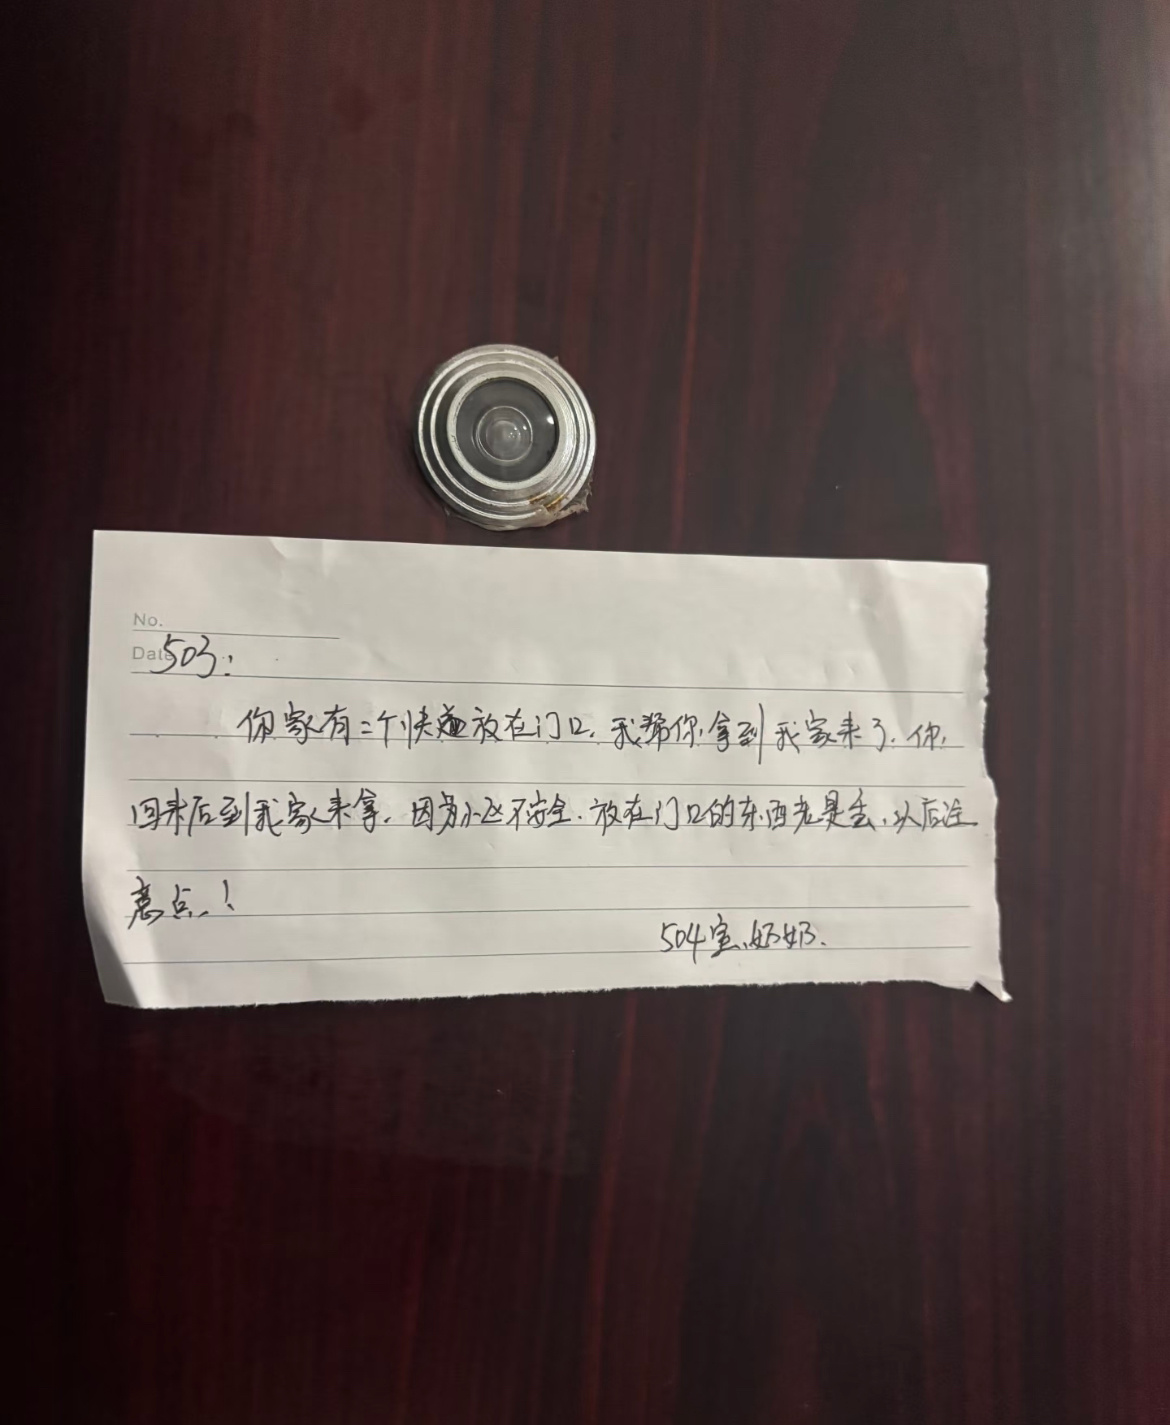 No.
Date
503:
你家有二个快递放在门口.我帮你拿到我家来了.你
回来后到我家来拿.因为小区不安全.放在门口的东西老是丢.以后注
意点.!
504室.奶奶.